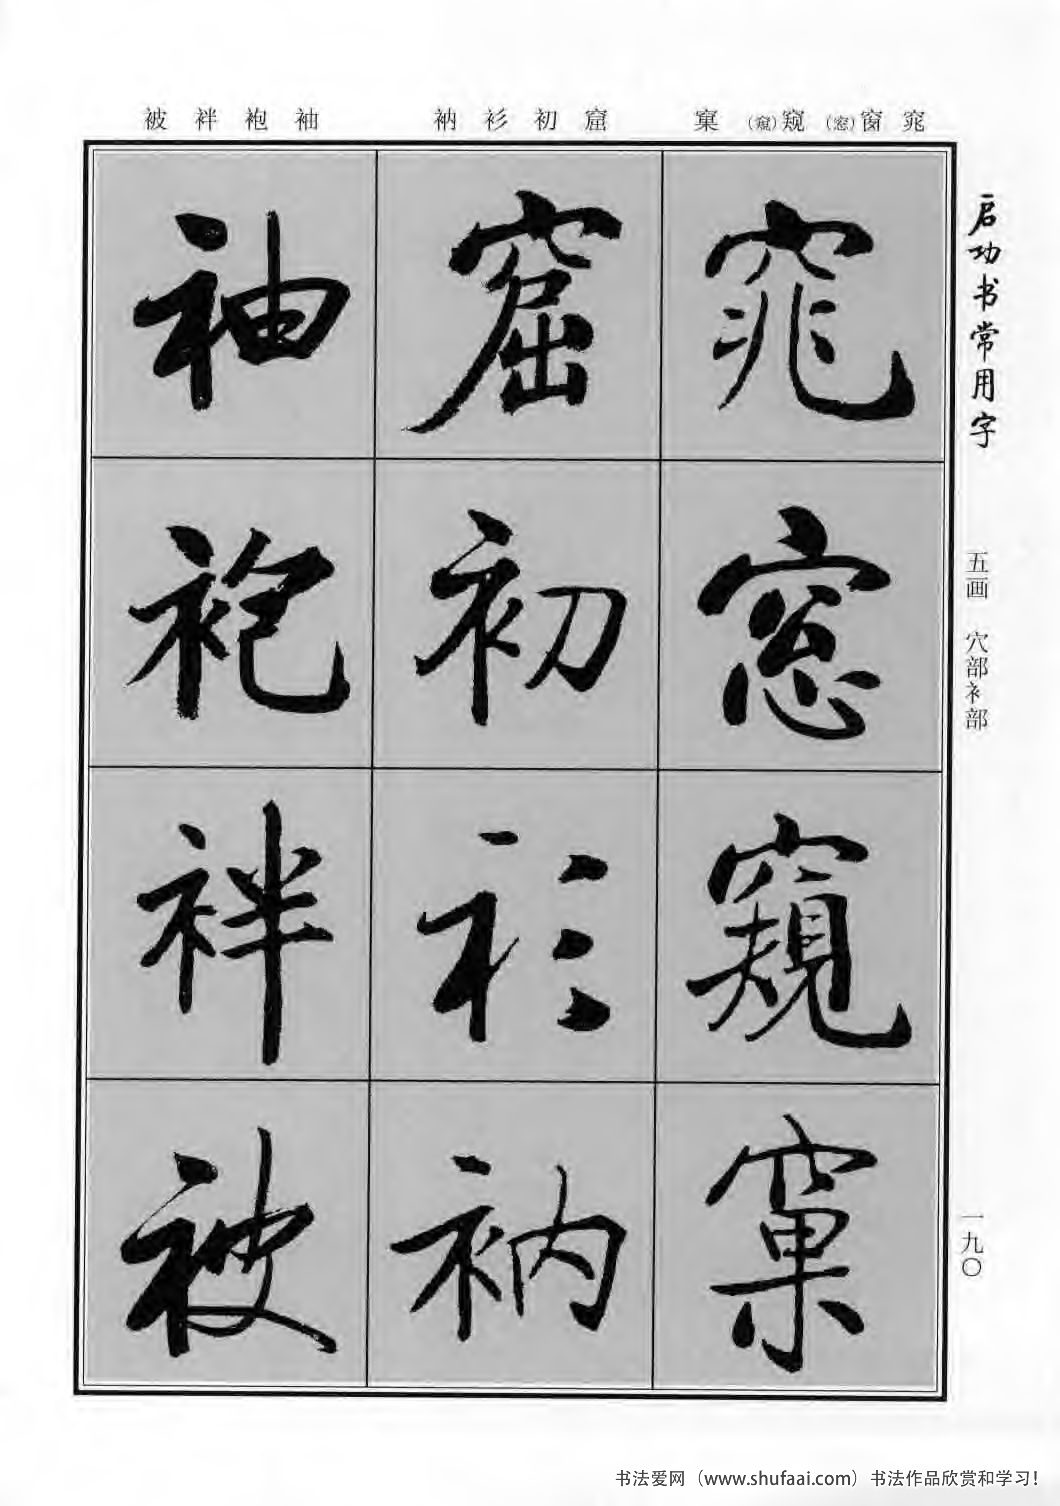 窕 窗（窓） 窥（窺） 窠
窟 初 衫 衲
袖 袍 袢 被
启功书常用字
五画 穴部衤部
一九〇
窕
窓
窺
窠
窟
初
衫
衲
袖
袍
袢
被
书法爱网（www.shufaai.com）书法作品欣赏和学习！